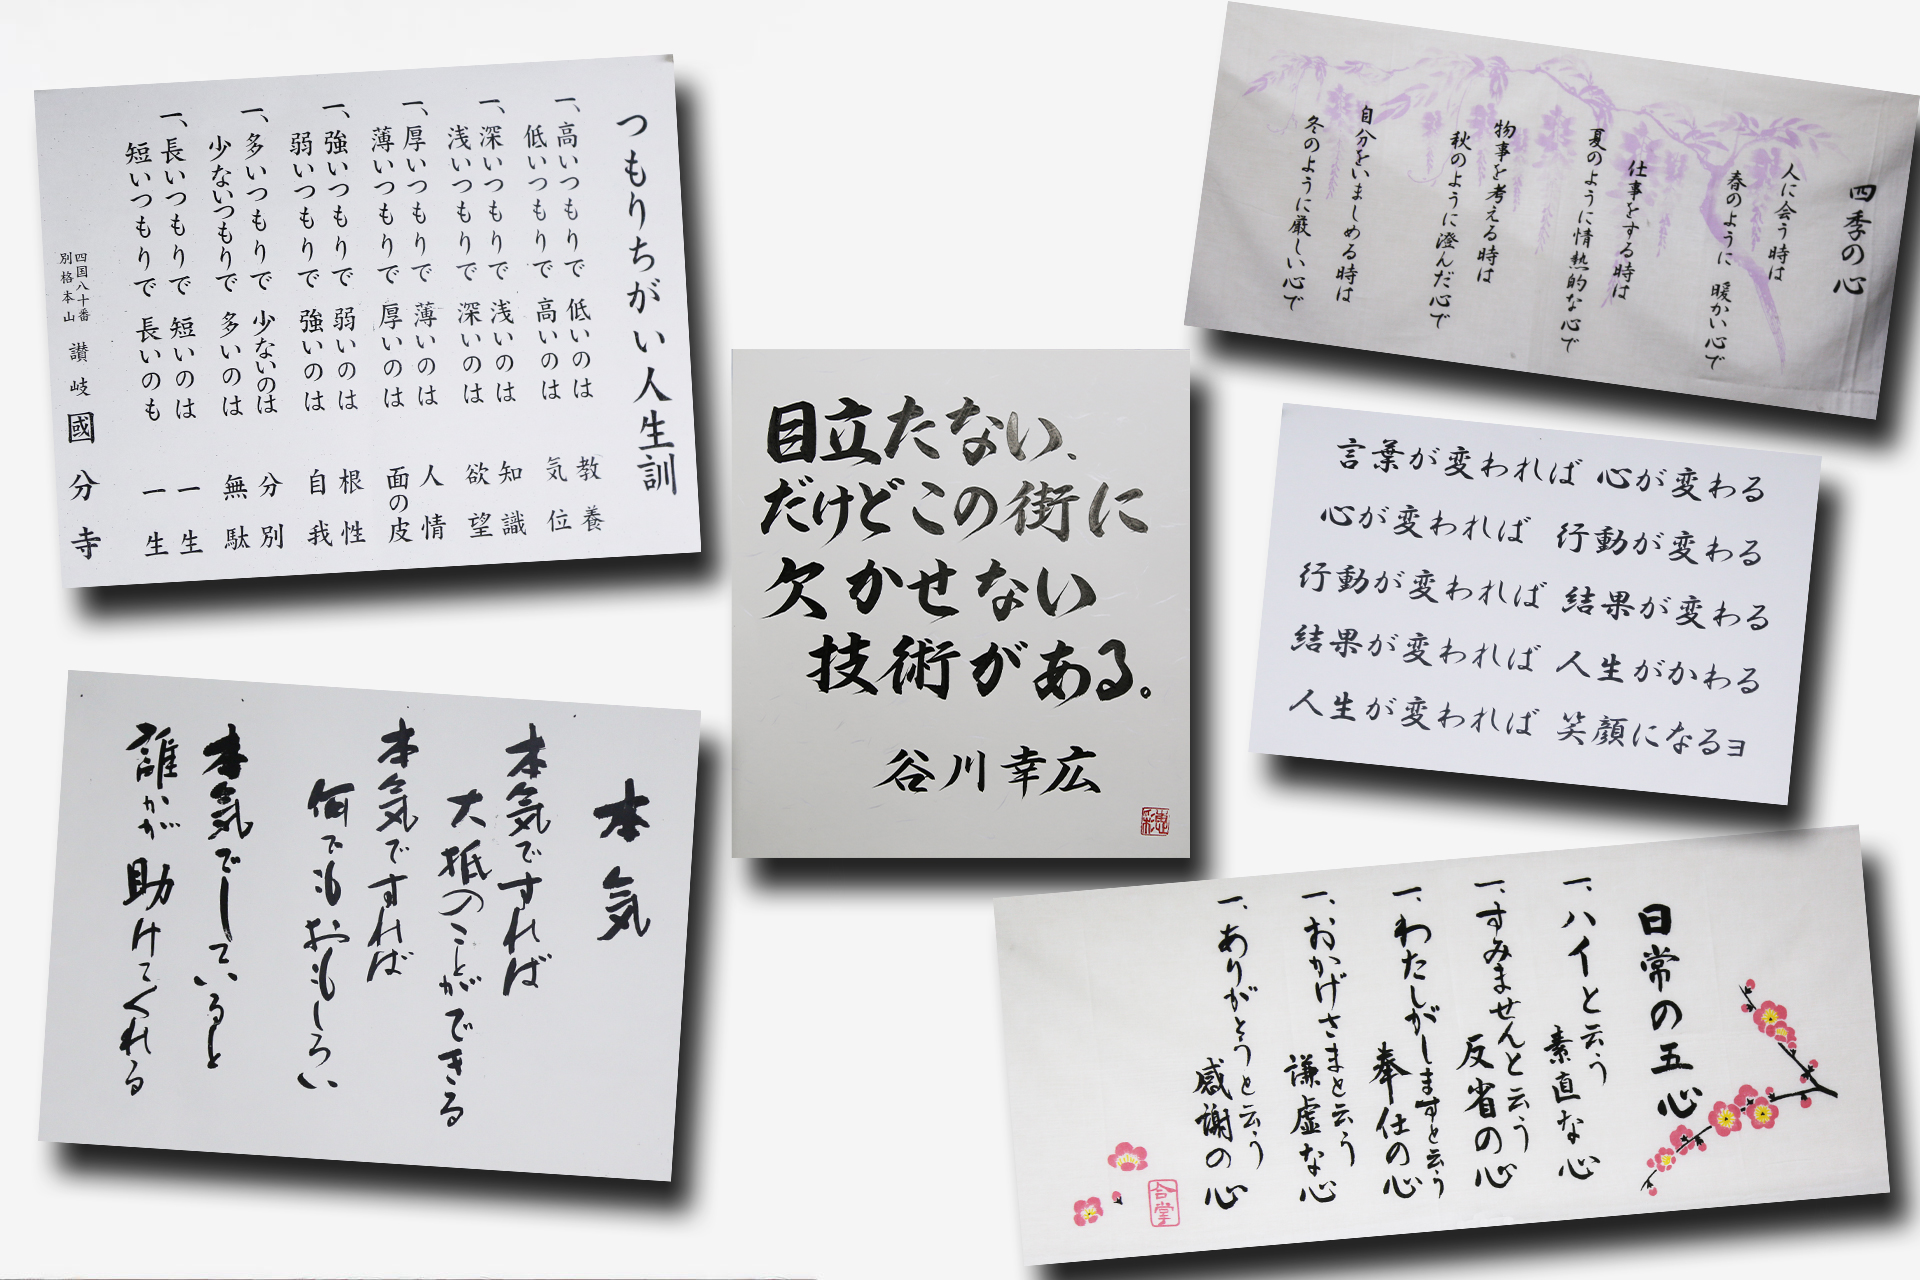 つもりちがい人生訓
一、高いつもりで 低いのは 教養
低いつもりで 高いのは 気位
一、深いつもりで 浅いのは 知識
浅いつもりで 深いのは 欲望
一、厚いつもりで 薄いのは 人情
薄いつもりで 厚いのは 面の皮
一、強いつもりで 弱いのは 根性
弱いつもりで 強いのは 自我
一、多いつもりで 少ないのは 分別
少ないつもりで 多いのは 無駄
一、長いつもりで 短いのは 一生
短いつもりで 長いのも 一生
四国八十番
別格本山
讃岐國分寺
本気
本気ですれば
大抵のことができる
本気ですれば
何でもおもしろい
本気でしていると
誰かが助けてくれる
目立たない、
だけどこの街に
欠かせない
技術がある。
谷川幸広
四季の心
人に会う時は
春のように 暖かい心で
仕事をする時は
夏のように情熱的な心で
物事を考える時は
秋のように澄んだ心で
自分をいましめる時は
冬のように厳しい心で
言葉が変われば 心が変わる
心が変われば 行動が変わる
行動が変われば 結果が変わる
結果が変われば 人生がかわる
人生が変われば 笑顔になるヨ
日常の五心
一、ハイと云う
素直な心
一、すみませんと云う
反省の心
一、わたしがしますと云う
奉仕の心
一、おかげさまと云う
謙虚な心
一、ありがとうと云う
感謝の心
合掌